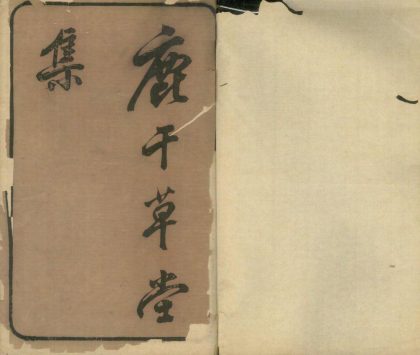 鹿干草堂
集